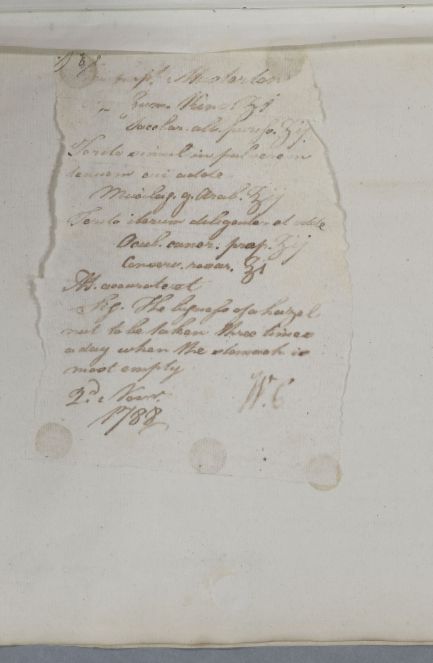 Mr Marlow
" Venet. ʒj
" Sacchar. alb. puriss. ʒij
Terito simul in pulverem
tenuem cui adde
Mucilag. g. Arab. ʒij
Terito iterum diligenter et adde
Ocul. cancr. ppp. ʒij
Conserv. rosar. ʒi
M. accurate et
Sig. The bigness of a hazel
nut to be taken three times
a day when the stomach is
most empty
2d. Novr.
1788
W. C